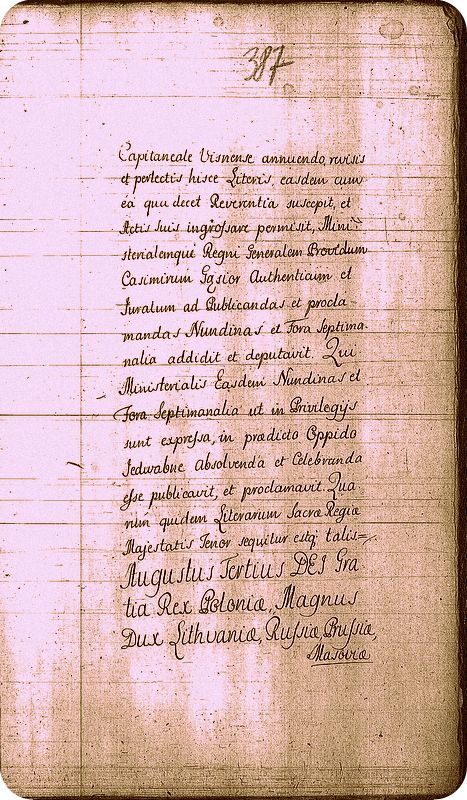 387
Capitaneale Visnense annuendo, revisis
et perlectis hisce Literis, easdem cum
eá qua decet Reverentia suscepit, et
Actis suis ingrossare permisit, Mini-
sterialemque Regni Generalem Providum
Casimirum Gąsior Authenticum et
Juratum ad Publicandas et procla-
mandas Nundinas et Fora Septima-
nalia addidit et deputavit. Qui
Ministerialis Easdem Nundinas et
Fora Septimanalia ut in Privilegijs
sunt expressa, in prædicto Oppido
Jedwabne Absolvenda et Celebranda
esse publicavit, et proclamavit. Qua
rum quidem Literarum Sacræ Regiæ
Majestatis Tenor sequitur estq; talis=
Augustus Tertius DEI Gra
tia Rex Poloniæ, Magnus
Dux Lithvaniæ, Russiæ, Prussiæ,
Masoviæ